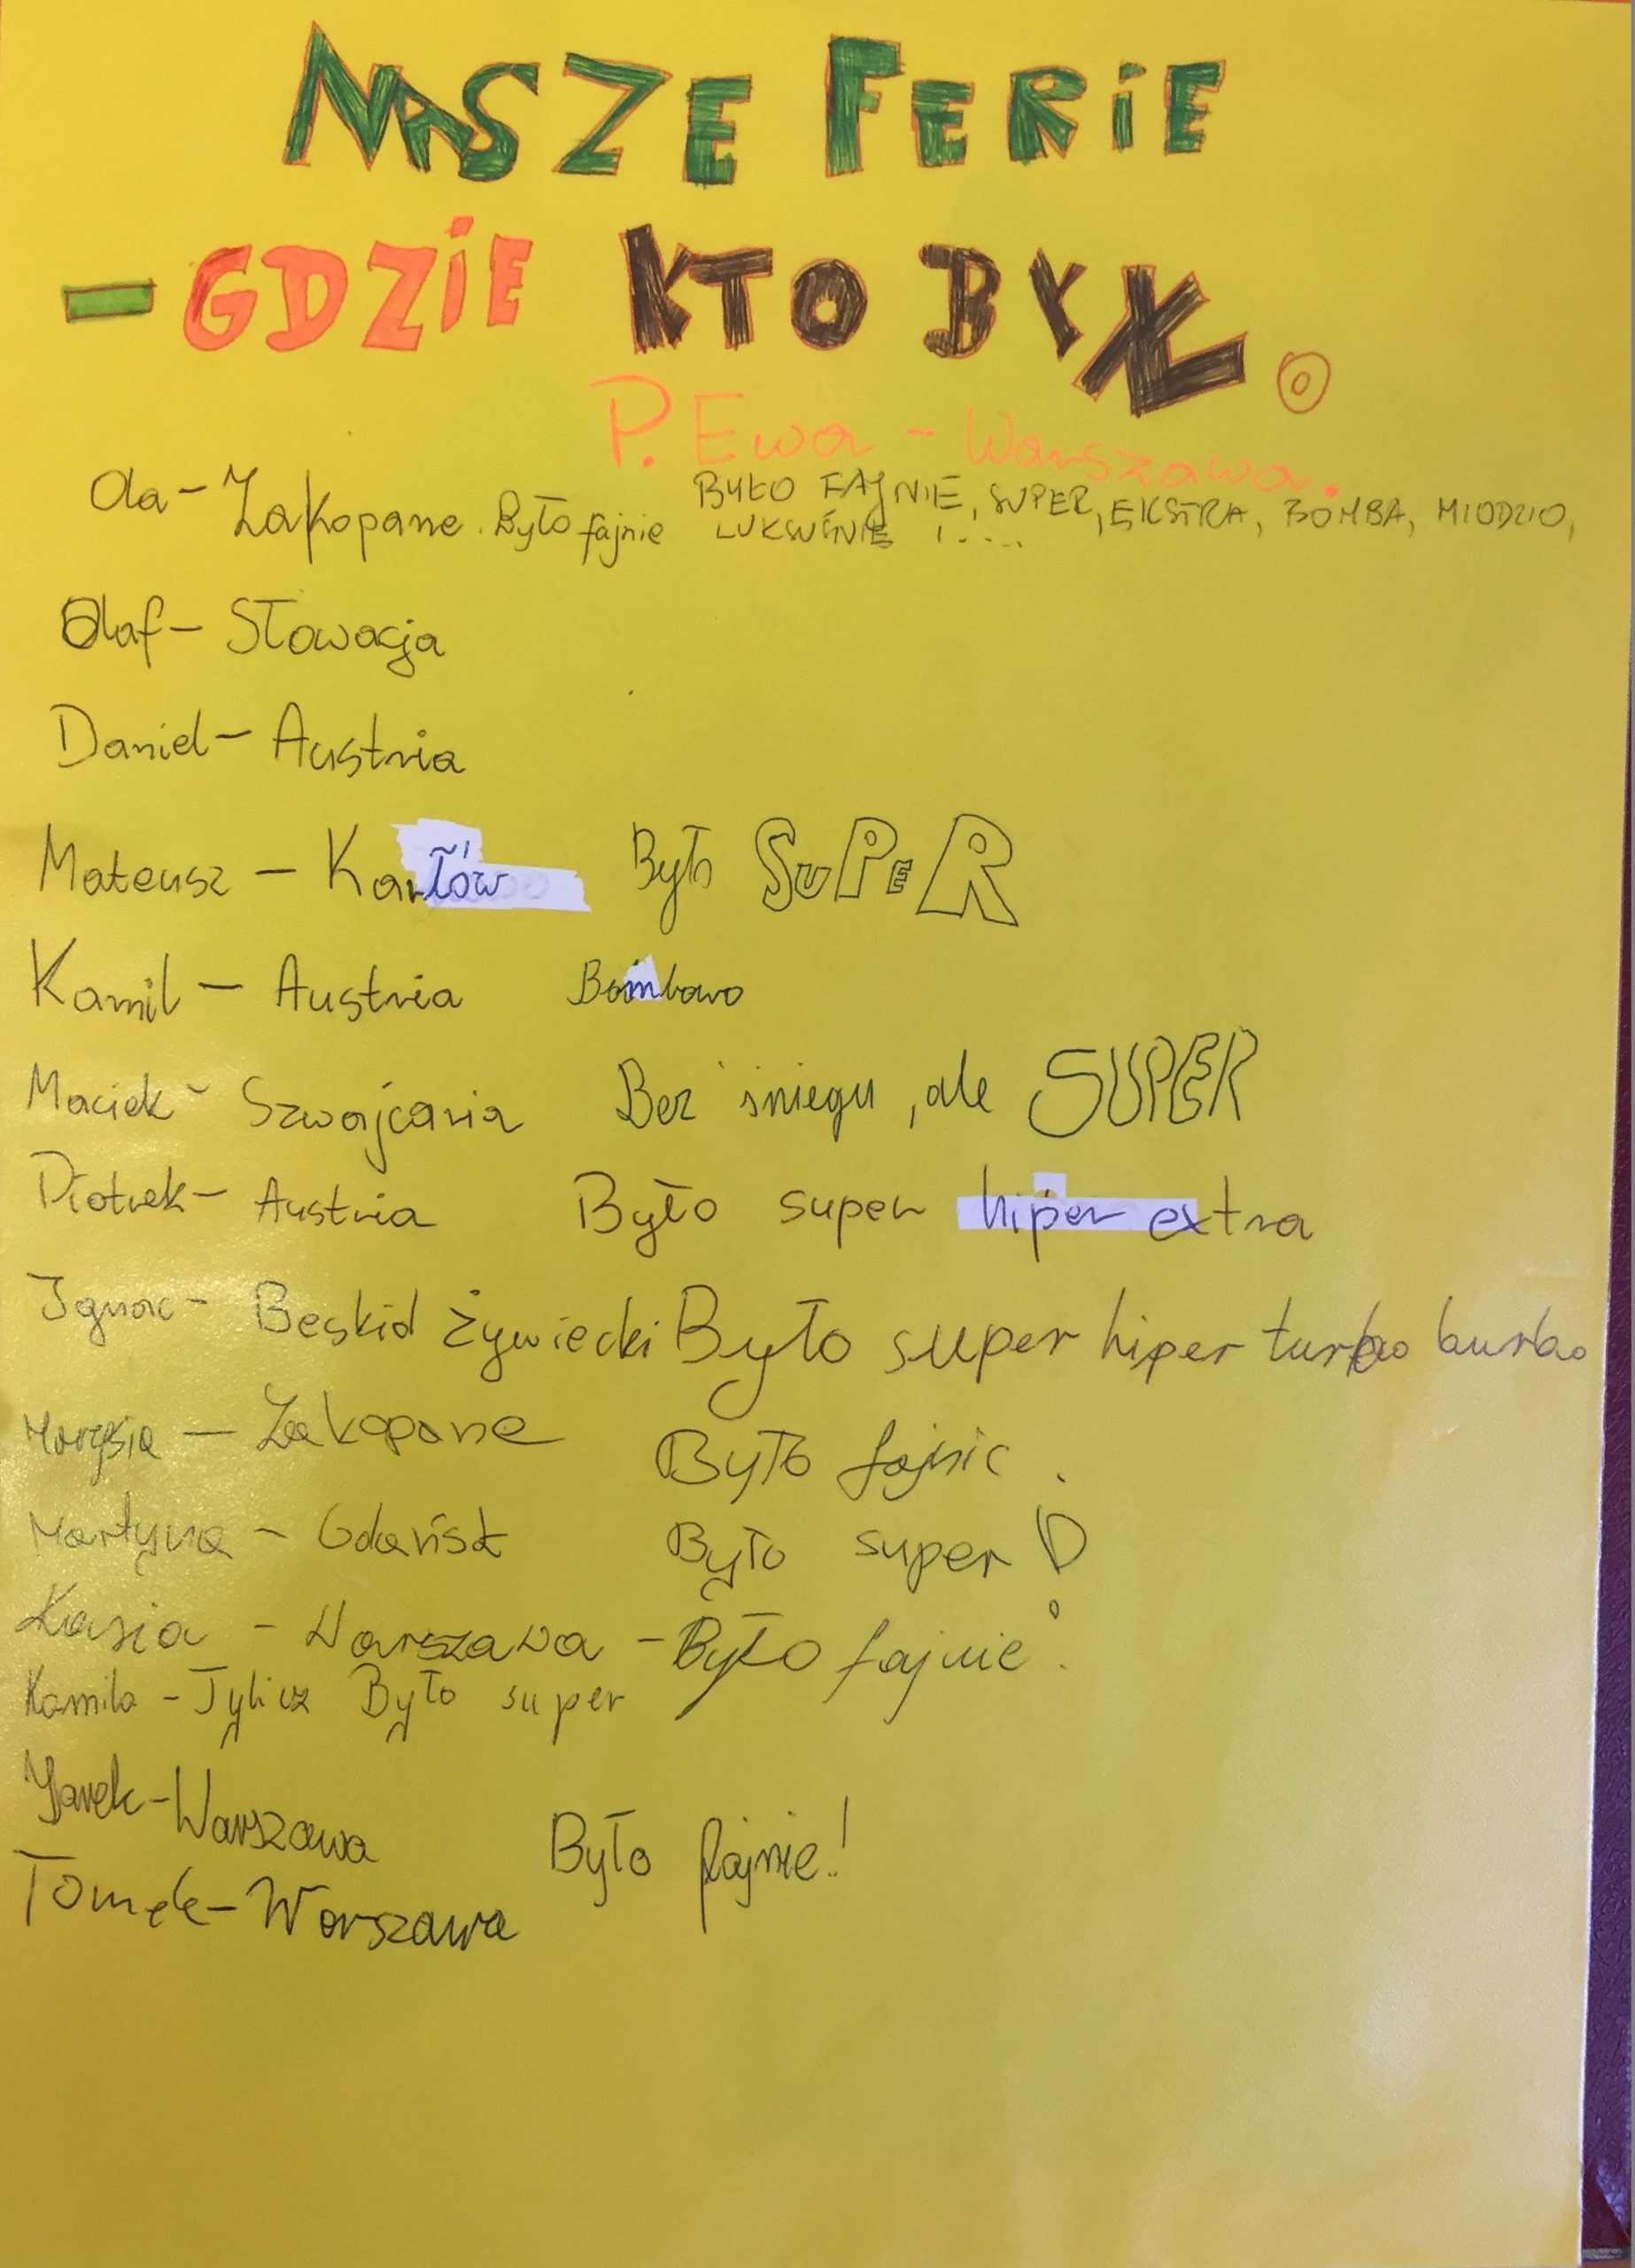 NASZE FERiE
- GDZiE KTO BYŁ.
P. Ewa - Warszawa.
Ola - Zakopane. Było fajnie BYŁO FAJNIE, SUPER, EKSTRA, BOMBA, MIODZIO,
LUKSUŚNIE !....
Olaf - Słowacja
Daniel - Austria
Mateusz - Karłów Było SuPeR
Kamil - Austria Bombowo
Maciek - Szwajcaria Bez śniegu, ale SUPER
Piotrek - Austria Było super hiper extra
Ignac - Beskid Żywiecki Było super hiper turbo burbo
Marysia - Zakopane Było fajnie.
Martyna - Gdańsk Było super!
Kasia - Warszawa - Było fajnie.
Kamila - Tylicz Było super
Jarek - Warszawa
Było fajnie!
Tomek - Warszawa